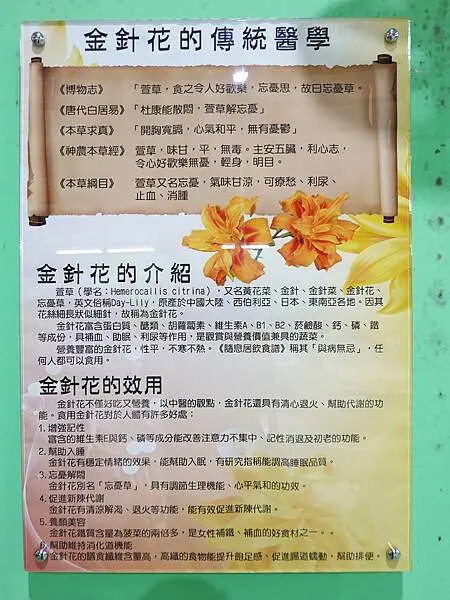 金針花的傳統醫學
《博物志》 「萱草，食之令人好歡樂，忘憂思，故曰忘憂草。
《唐代白居易》「杜康能散悶，萱草解忘憂」
《本草求真》 「開胸寬膈，心氣和平，無有憂鬱」
《神農本草經》 萱草，味甘，平，無毒。主安五臟，利心志，
令心好歡樂無憂，輕身，明目。
《本草綱目》 萱草又名忘憂，氣味甘涼，可療愁、利尿、
止血、消腫
金針花的介紹
萱草（學名：Hemerocallis citrina），又名黃花菜、金針、金針菜、金針花、
忘憂草，英文俗稱Day-Lily，原產於中國大陸、西伯利亞、日本、東南亞各地。因其
花絲細長狀似細針，故稱為金針花。
金針花富含蛋白質、醣類、胡蘿蔔素、維生素A、B1、B2、菸鹼酸、鈣、磷、鐵
等成份，具補血、助眠、利尿等作用，是觀賞與營養價值兼具的蔬菜。
營養豐富的金針花，性平，不寒不熱。《隨息居飲食譜》稱其「與病無忌」，任
何人都可以食用。
金針花的效用
金針花不僅好吃又營養，以中醫的觀點，金針花還具有清心退火、幫助代謝的功
能。食用金針花對於人體有許多好處：
1.增強記性
富含的維生素E與鈣、磷等成分能改善注意力不集中、記性消退及初老的功能。
2.幫助入睡
金針花有穩定情緒的效果，能幫助入眠，有研究指稱能調高睡眠品質。
3.忘憂解悶
金針花別名「忘憂草」，具有調節生理機能、心平氣和的功效。
4.促進新陳代謝
金針花有清涼解渴、退火等功能，能有效促進新陳代謝。
5.養顏美容
金針花鐵質含量為菠菜的兩倍多，是女性補鐵、補血的好食材之一。。
6.幫助維持消化道機能
金針花的膳食纖維含量高，高纖的食物能提升飽足感、促進腸道蠕動，幫助排便。